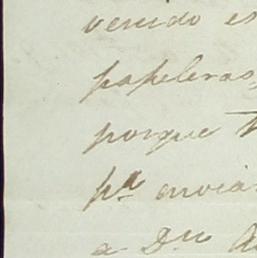 venido es
papeleras,
porque t
pª enviar
a Dn A